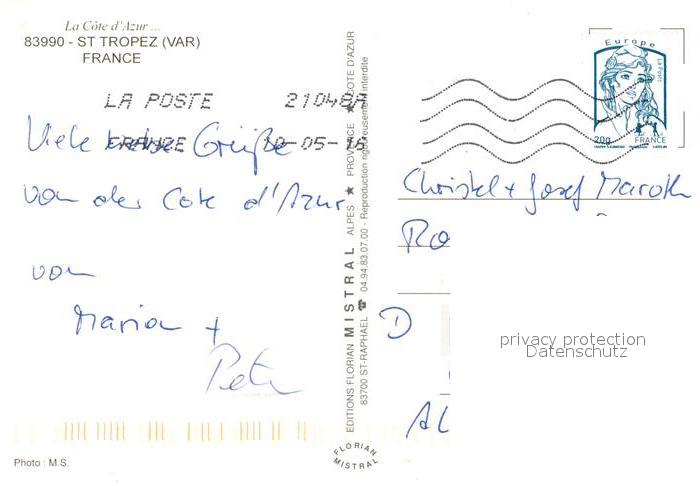 La Côte d'Azur ...
83990 - ST TROPEZ (VAR)
FRANCE
LA POSTE 21048A
FRANCE 10-05-16
Viele liebe Grüße
von der Cote d'Azur
von
Maria +
Peter
Photo : M.S.
EDITIONS FLORIAN MISTRAL ALPES ★ PROVENCE ★ COTE D'AZUR
83700 ST-RAPHAEL ☎ 04.94.83.07.00 - Reproduction rigoureusement interdite
FLORIAN
MISTRAL
Europe
La Poste
20g
FRANCE
Christel + Josef Maroth
Ro
D
AL
privacy protection
Datenschutz